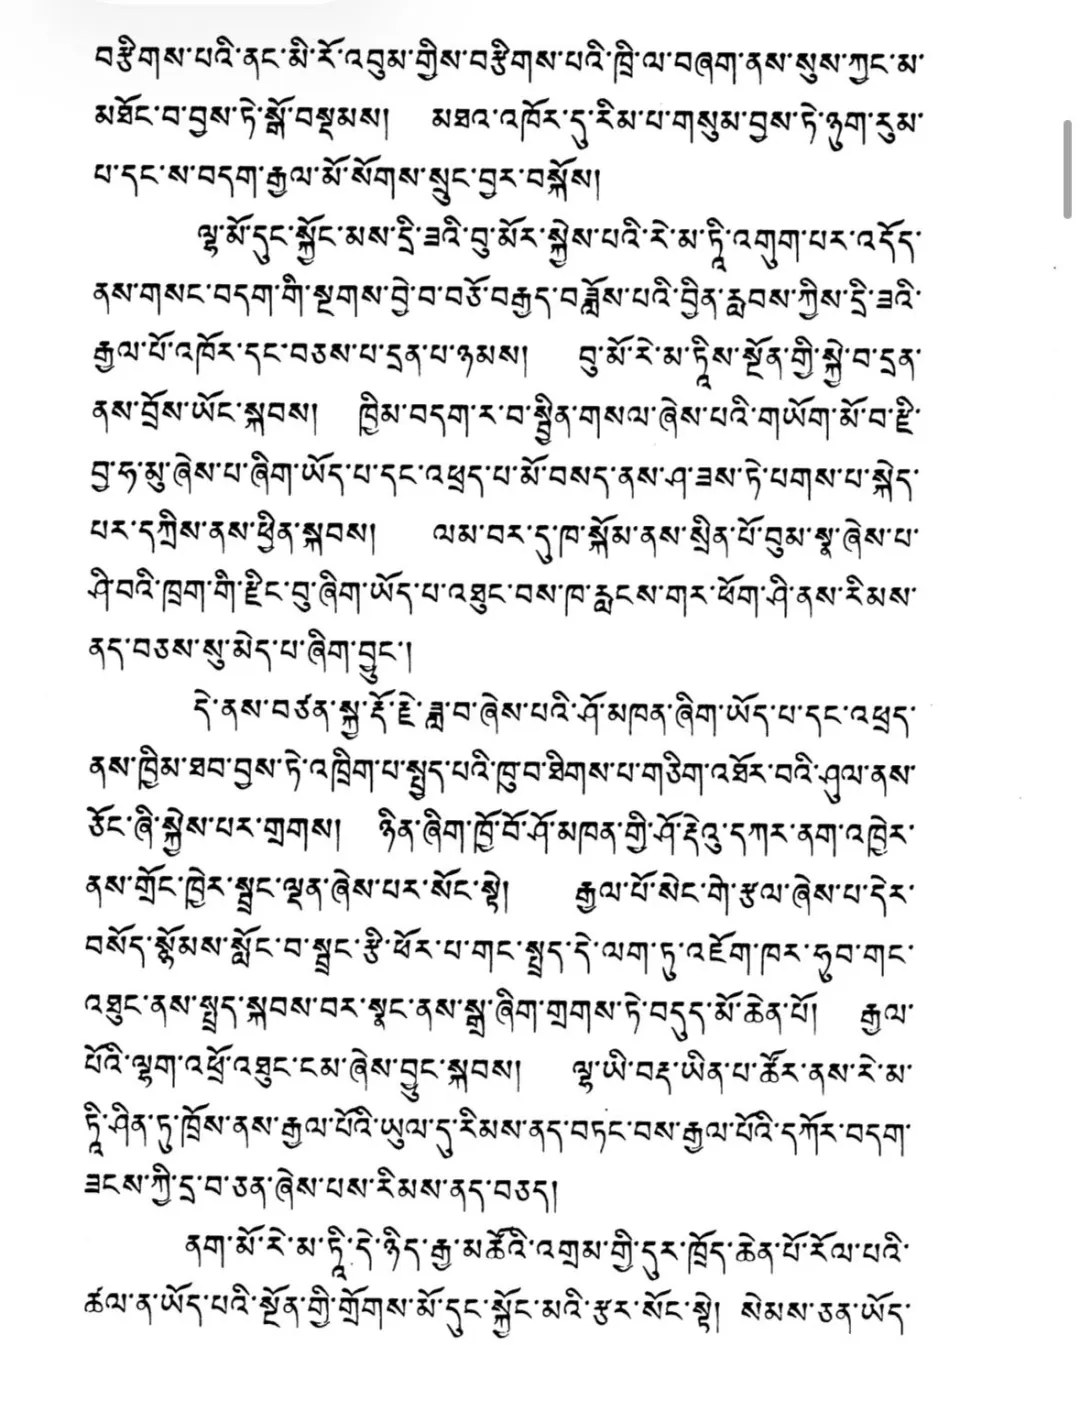 བརྩིགས་པའི་ནང་མི་རོ་འབུམ་གྱིས་བརྩིགས་པའི་ཁྲི་ལ་བཞག་ནས་སུས་ཀྱང་མ་
མཐོང་བ་བྱས་ཏེ་སྒོ་བསྡམས། མཐའ་འཁོར་དུ་རིམ་པ་གསུམ་བྱས་ཏེ་ཉུག་རུམ་
པ་དང་ས་བདག་རྒྱལ་མོ་སོགས་སྲུང་བྱར་བསྐོས།
ལྷ་མོ་དུང་སྐྱོང་མས་དྲི་ཟའི་བུ་མོར་སྐྱེས་པའི་རེ་མ་ཏཱི་འགུག་པར་འདོད་
ནས་གསང་བདག་གི་སྔགས་བྱེ་བ་བཅོ་བརྒྱད་བཟློས་པའི་བྱིན་རླབས་ཀྱིས་དྲི་ཟའི་
རྒྱལ་པོ་འཁོར་དང་བཅས་པ་དྲན་པ་ཉམས། བུ་མོ་རེ་མ་ཏཱིས་སྔོན་གྱི་སྐྱེ་བ་དྲན་
ནས་བྲོས་ཡོང་སྐབས། ཁྱིམ་བདག་ར་བ་སྦྱིན་གསལ་ཞེས་པའི་གཡོག་མོ་བ་རྫི་
བྱ་ཧ་མུ་ཞེས་པ་ཞིག་ཡོད་པ་དང་འཕྲད་པ་མོ་བསད་ནས་ཤ་ཟས་ཏེ་པགས་པ་སྐེད་
པར་དཀྲིས་ནས་ཕྱིན་སྐབས། ལམ་བར་དུ་ཁ་སྐོམ་ནས་སྲིན་པོ་བུམ་སྣ་ཞེས་པ་
ཤི་བའི་ཁྲག་གི་རྫིང་བུ་ཞིག་ཡོད་པ་འཐུང་བས་ཁ་རླངས་གར་ཕོག་ཤི་ནས་རིམས་
ནད་བཅས་སུ་མེད་པ་ཞིག་བྱུང་།
དེ་ནས་བཙན་སྐྱ་རྡོ་རྗེ་ཟླ་བ་ཞེས་པའི་ཤོ་མཁན་ཞིག་ཡོད་པ་དང་འཕྲད་
ནས་ཁྱིམ་ཐབ་བྱས་ཏེ་འཁྲིག་པ་སྤྱད་པའི་ཁུ་བ་ཐིགས་པ་གཅིག་འཐོར་བའི་ཤུལ་ནས་
ཅོང་ཞི་སྐྱེས་པར་གྲགས། ཉིན་ཞིག་ཁྱོ་བོ་ཤོ་མཁན་གྱི་ཤོ་རྡེའུ་དཀར་ནག་འཁྱེར་
ནས་གྲོང་ཁྱེར་སྦྲང་ལྡན་ཞེས་པར་སོང་སྟེ། རྒྱལ་པོ་སེང་གེ་རྩལ་ཞེས་པ་དེར་
བསོད་སྙོམས་སློང་བ་སྦྲང་རྩི་ཕོར་པ་གང་སྤྲད་དེ་ལག་ཏུ་འཇོག་ཁར་ཧུབ་གང་
འཐུང་ནས་སྤྲད་སྐབས་བར་སྣང་ནས་སྒྲ་ཞིག་གྲགས་ཏེ་བདུད་མོ་ཆེན་པོ། རྒྱལ་
པོའི་ལྷག་འཕྲོ་འཐུང་ངམ་ཞེས་བྱུང་སྐབས། ལྷ་ཡི་བརྡ་ཡིན་པ་ཚོར་ནས་རེ་མ་
ཏཱི་ཤིན་ཏུ་ཁྲོས་ནས་རྒྱལ་པོའི་ཡུལ་དུ་རིམས་ནད་བཏང་བས་རྒྱལ་པོའི་དཀོར་བདག་
ཟངས་ཀྱི་དྲ་བ་ཅན་ཞེས་པས་རིམས་ནད་བཅད།
ནག་མོ་རེ་མ་ཏཱི་དེ་ཉིད་རྒྱ་མཚོའི་འགྲམ་གྱི་དུར་ཁྲོད་ཆེན་པོ་རོལ་པའི་
ཚལ་ན་ཡོད་པའི་སྔོན་གྱི་གྲོགས་མོ་དུང་སྐྱོང་མའི་རྩར་སོང་སྟེ། སེམས་ཅན་ཡོད་